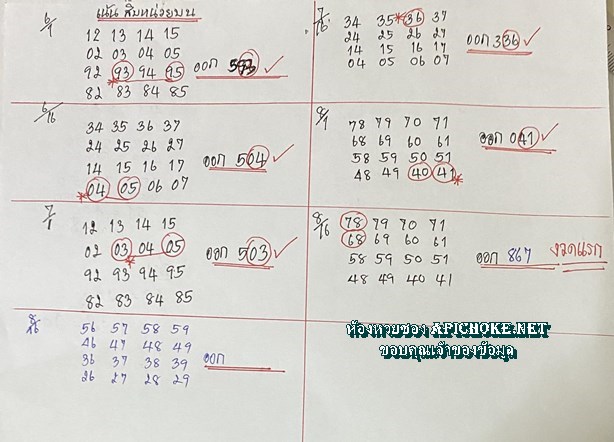 เน้น สิบหน่วยบน
6/1
12 13 14 15
02 03 04 05
92 93 94 95 ออก 593
82 83 84 85
6/16
34 35 36 37
24 25 26 27
14 15 16 17 ออก 504
04 05 06 07
7/1
12 13 14 15
02 03 04 05 ออก 503
92 93 94 95
82 83 84 85
56 57 58 59
46 47 48 49
36 37 38 39 ออก
26 27 28 29
7/16
34 35 36 37
24 25 26 27 ออก 336
14 15 16 17
04 05 06 07
8/1
78 79 70 71
68 69 60 61 ออก 041
58 59 50 51
48 49 40 41
8/16
78 79 70 71
68 69 60 61
58 59 50 51 ออก 867 งวดแรก
48 49 40 41
ห้องหวยซอง APICHOKE.NET
ขอบคุณเจ้าของข้อมูล